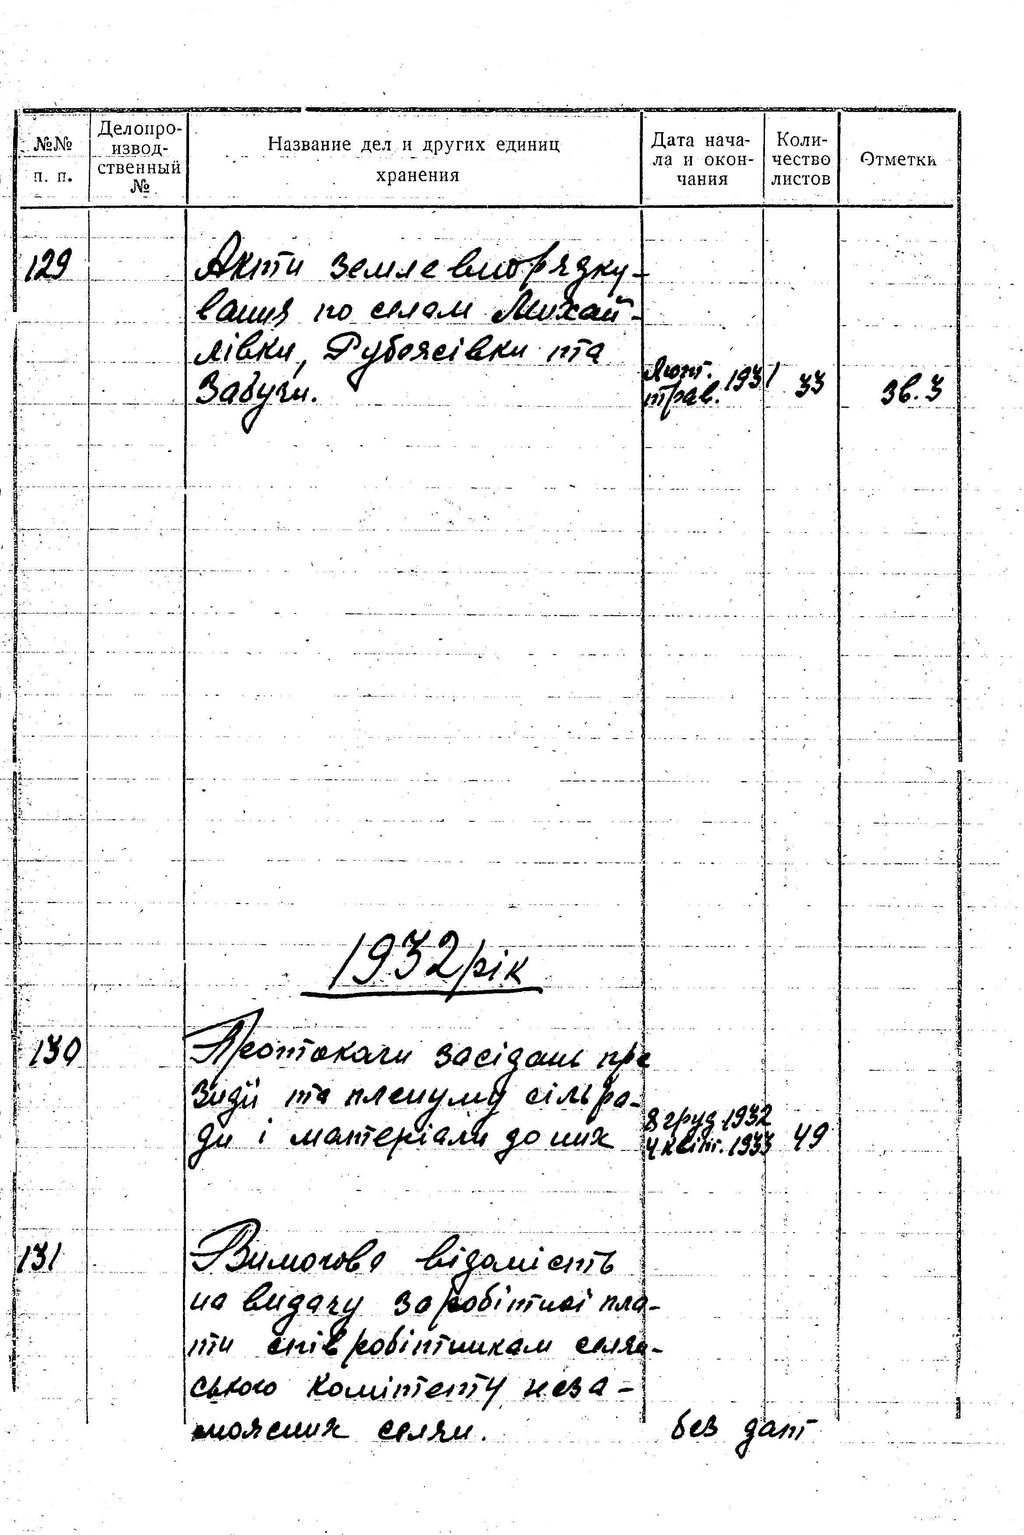 №№ п. п.
Делопроизводственный №
Название дел и других единиц хранения
Дата начала и окончания
Количество листов
Отметки
129
Акти землевпорядку-
вання по селам Михай-
лівки, Рубежівки та
Забуччя.
Лют. 1931
трав.
33
зв. 3
1932 рік
130
Протоколи засідань пре
зидії та пленуму сільра-
ди і матеріали до них
8 груд. 1932
4 квіт. 1933
49
131
Вимогова відомість
на видачу заробітної пла-
ти співробітникам селян-
ського комітету неза-
можних селян.
без дат